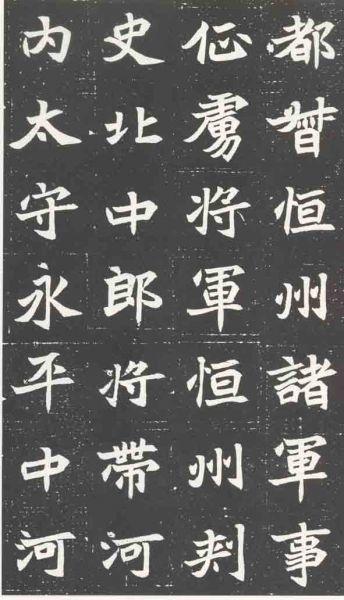 都督恒州諸軍事
征虜将軍恒州刺
史北中郎将帶河
内太守永平中河